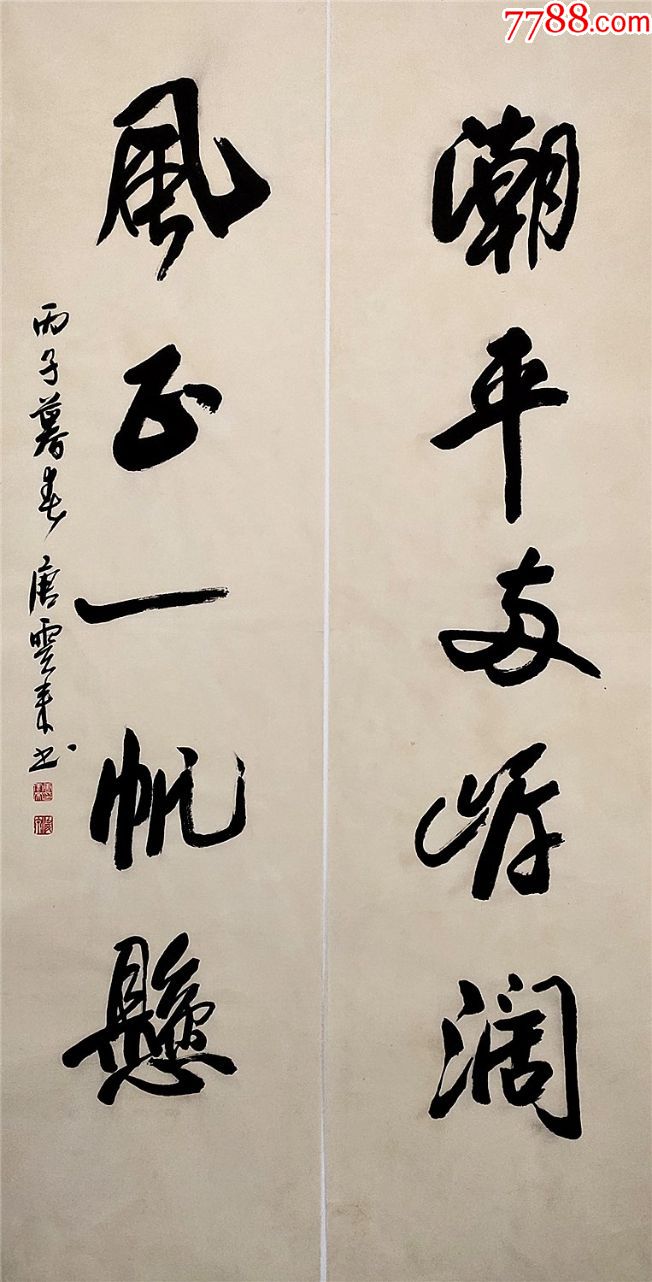 7788.com
潮平两岸阔
風正一帆懸
丙子暮春 唐雲来书